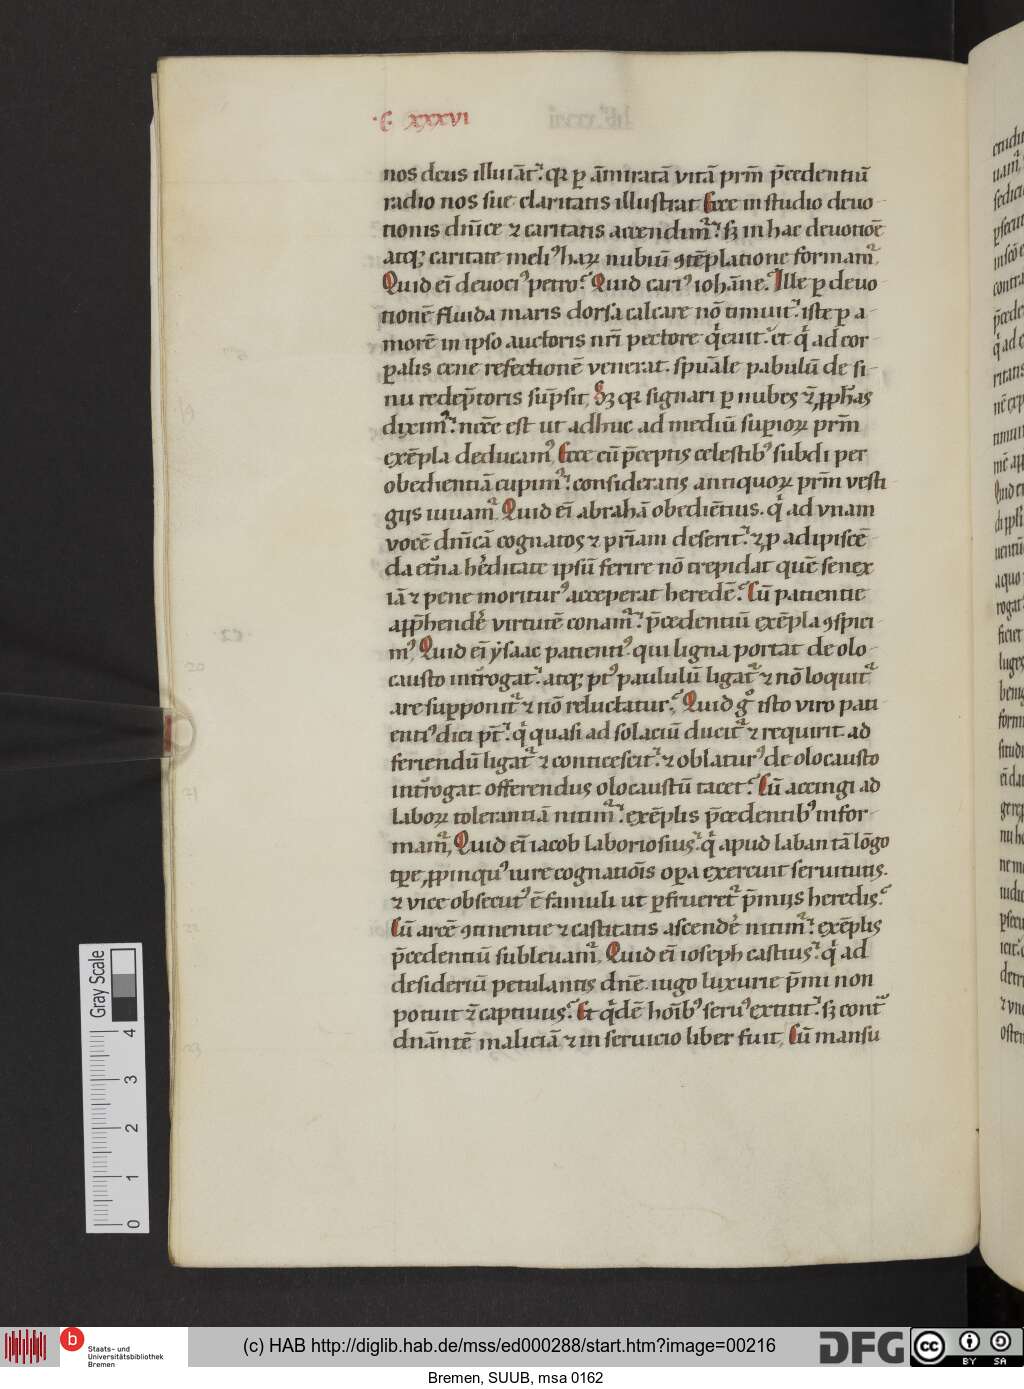 ·C̄ xxxvi
nos deus illuīat᷑. qꝛ ꝑ āmiratā vitā prīm p̄cedentiū
radio nos sue claritatis illustrat Ecce in studio deuo
tionis dn̄ice ⁊ caritatis accendim᷑. sꝫ in hac deuotiōe
atqꝫ caritate meliꝰ haꝝ nubiū ꝯtēplatione formam᷑.
Quid eī deuociꝰ petro? Quid cariꝰ iohāne? Ille ꝑ deuo
tionē fluida maris dorsa calcare nō timuit. iste ꝑ a
morē in ipso auctoris nr̄i pectore qͥeuit. et qͥ ad cor
ꝑalis cene refectionē venerat. spūale pabulū de si
nu redēptoris sūpsit, Sꝫ qꝛ signari ꝑ nubes ⁊ ꝓph̄as
diximꝰ. necc̄e est ut adhuc ad mediū supioꝝ prīm
exēpla deducamꝰ. Ecce cū p̄ceptis celestibꝰ subdi per
obedientiā cupimꝰ. consideratis antiquoꝝ prīm vesti
giis iuuam᷑. Quid eī abrahā obediētius. qͥ ad vnam
vocē dn̄icā cognatos ⁊ pr̄iam deserit. ⁊ ꝓ adipiscē
da et̄na h̄editate ipsū ferire nō trepidat quē senex
iā ⁊ pene moriturꝰ acceperat heredē? Cū patientie
app̄hendē virtutē conam᷑. p̄cedentiū exēpla ꝯspici
mꝰ, Quid eī ysaac patientiꝰ. qui ligna portat de olo
causto int̄rogat. atqꝫ pꝰt paululū ligat᷑ ⁊ nō loquit᷑
are supponit᷑ ⁊ nō reluctatur? Quid gͦ isto viro pati
entiꝰ dici pt̄. qͥ quasi ad solaciū ducit᷑ ⁊ requirit ad
feriendū ligat᷑ ⁊ conticescit. ⁊ oblaturꝰ de olocausto
int̄rogat offerendus olocaustū tacet? Cū accingi ad
laboꝝ tolerantiā nitim᷑. exēplis p̄cedentibꝰ infor
mam᷑, Quid eī iacob laboriosius. qͥ apud laban tā lōgo
tꝑe, ꝓpinquꝰ iure cognatiōis oꝑa exercuit seruitutis.
⁊ vice obsecutꝰ ē famuli ut ꝑfrueret᷑ p̄miis heredis?
Cū arcē ꝯtinentie ⁊ castitatis ascendē nitim᷑. exēplis
p̄cedentiū subleuam᷑, Quid eī ioseph castius. qͥ ad
desideriū petulantis dn̄e. iugo luxurie p̄mi non
potuit ⁊ captiuus? Et qͥdē hoīibꝰ seruꝰ extitit. sꝫ cont᷑
dn̄antē maliciā ⁊ in seruicio liber fuit, Cū mansu
20
21
22
23
Gray Scale
4
3
2
1
0
Staats- und
Universitätsbibliothek
Bremen
(c) HAB http://diglib.hab.de/mss/ed000288/start.htm?image=00216
DFG
cc BY SA
Bremen, SUUB, msa 0162